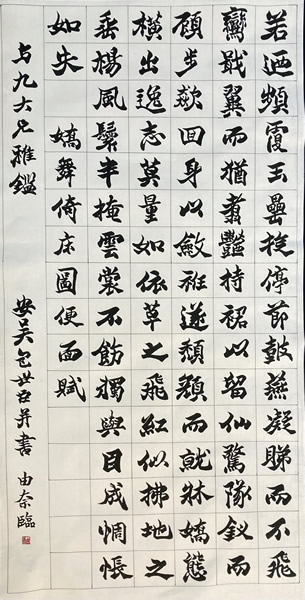 若迺頻覆玉罍控停節鼓燕凝睇而不飛
鸞戢翼而猶翥艷持裙以留仙驚隊釵而
顧步欻回身以斂袵遂頽顏而就牀嬌態
橫出逸志莫量如依草之飛紅似拂地之
垂楊風鬟半掩雲裳不飭獨與目成惆悵
如失　嬌舞倚床圖便面賦
与九大兄雅鑑　安吴包世臣并書　由奈臨